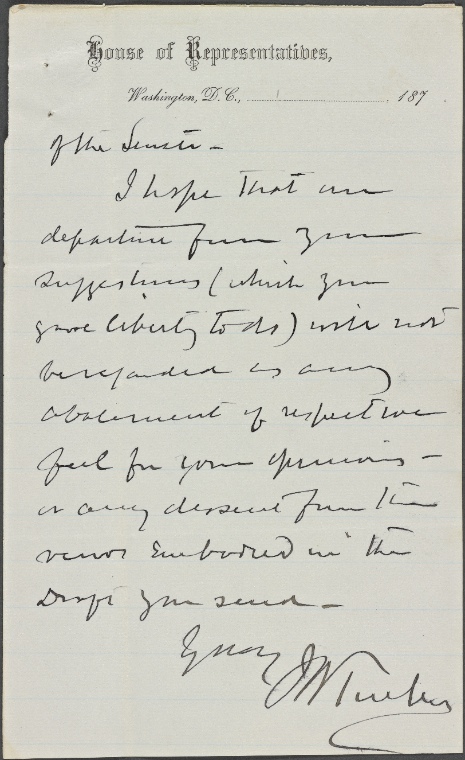 House of Representatives,
Washington, D. C., 187
of the Senate –
I hope that our
departure from your
suggestions (which you
gave liberty to do) will not
be regarded as any
abatement of respect we
feel for your opinions –
or any dissent from the
views embodied in the
Draft you send –
Yours
J R Tucker